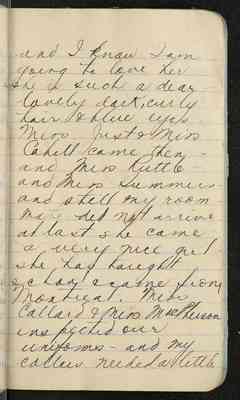 and I know I am
going to love her
she is such a dear
lovely dark, curly
hair & blue eyes
Miss Just & Miss
Cahill came then -
and Miss Tuttle
and Miss Summers
and still my room
mate did not arrive
at last she came
a very nice girl
she has taught
school & came from
Montreal. Miss
Callard & Miss MacPherson
inspected our
uniforms - and my
collars needed a little